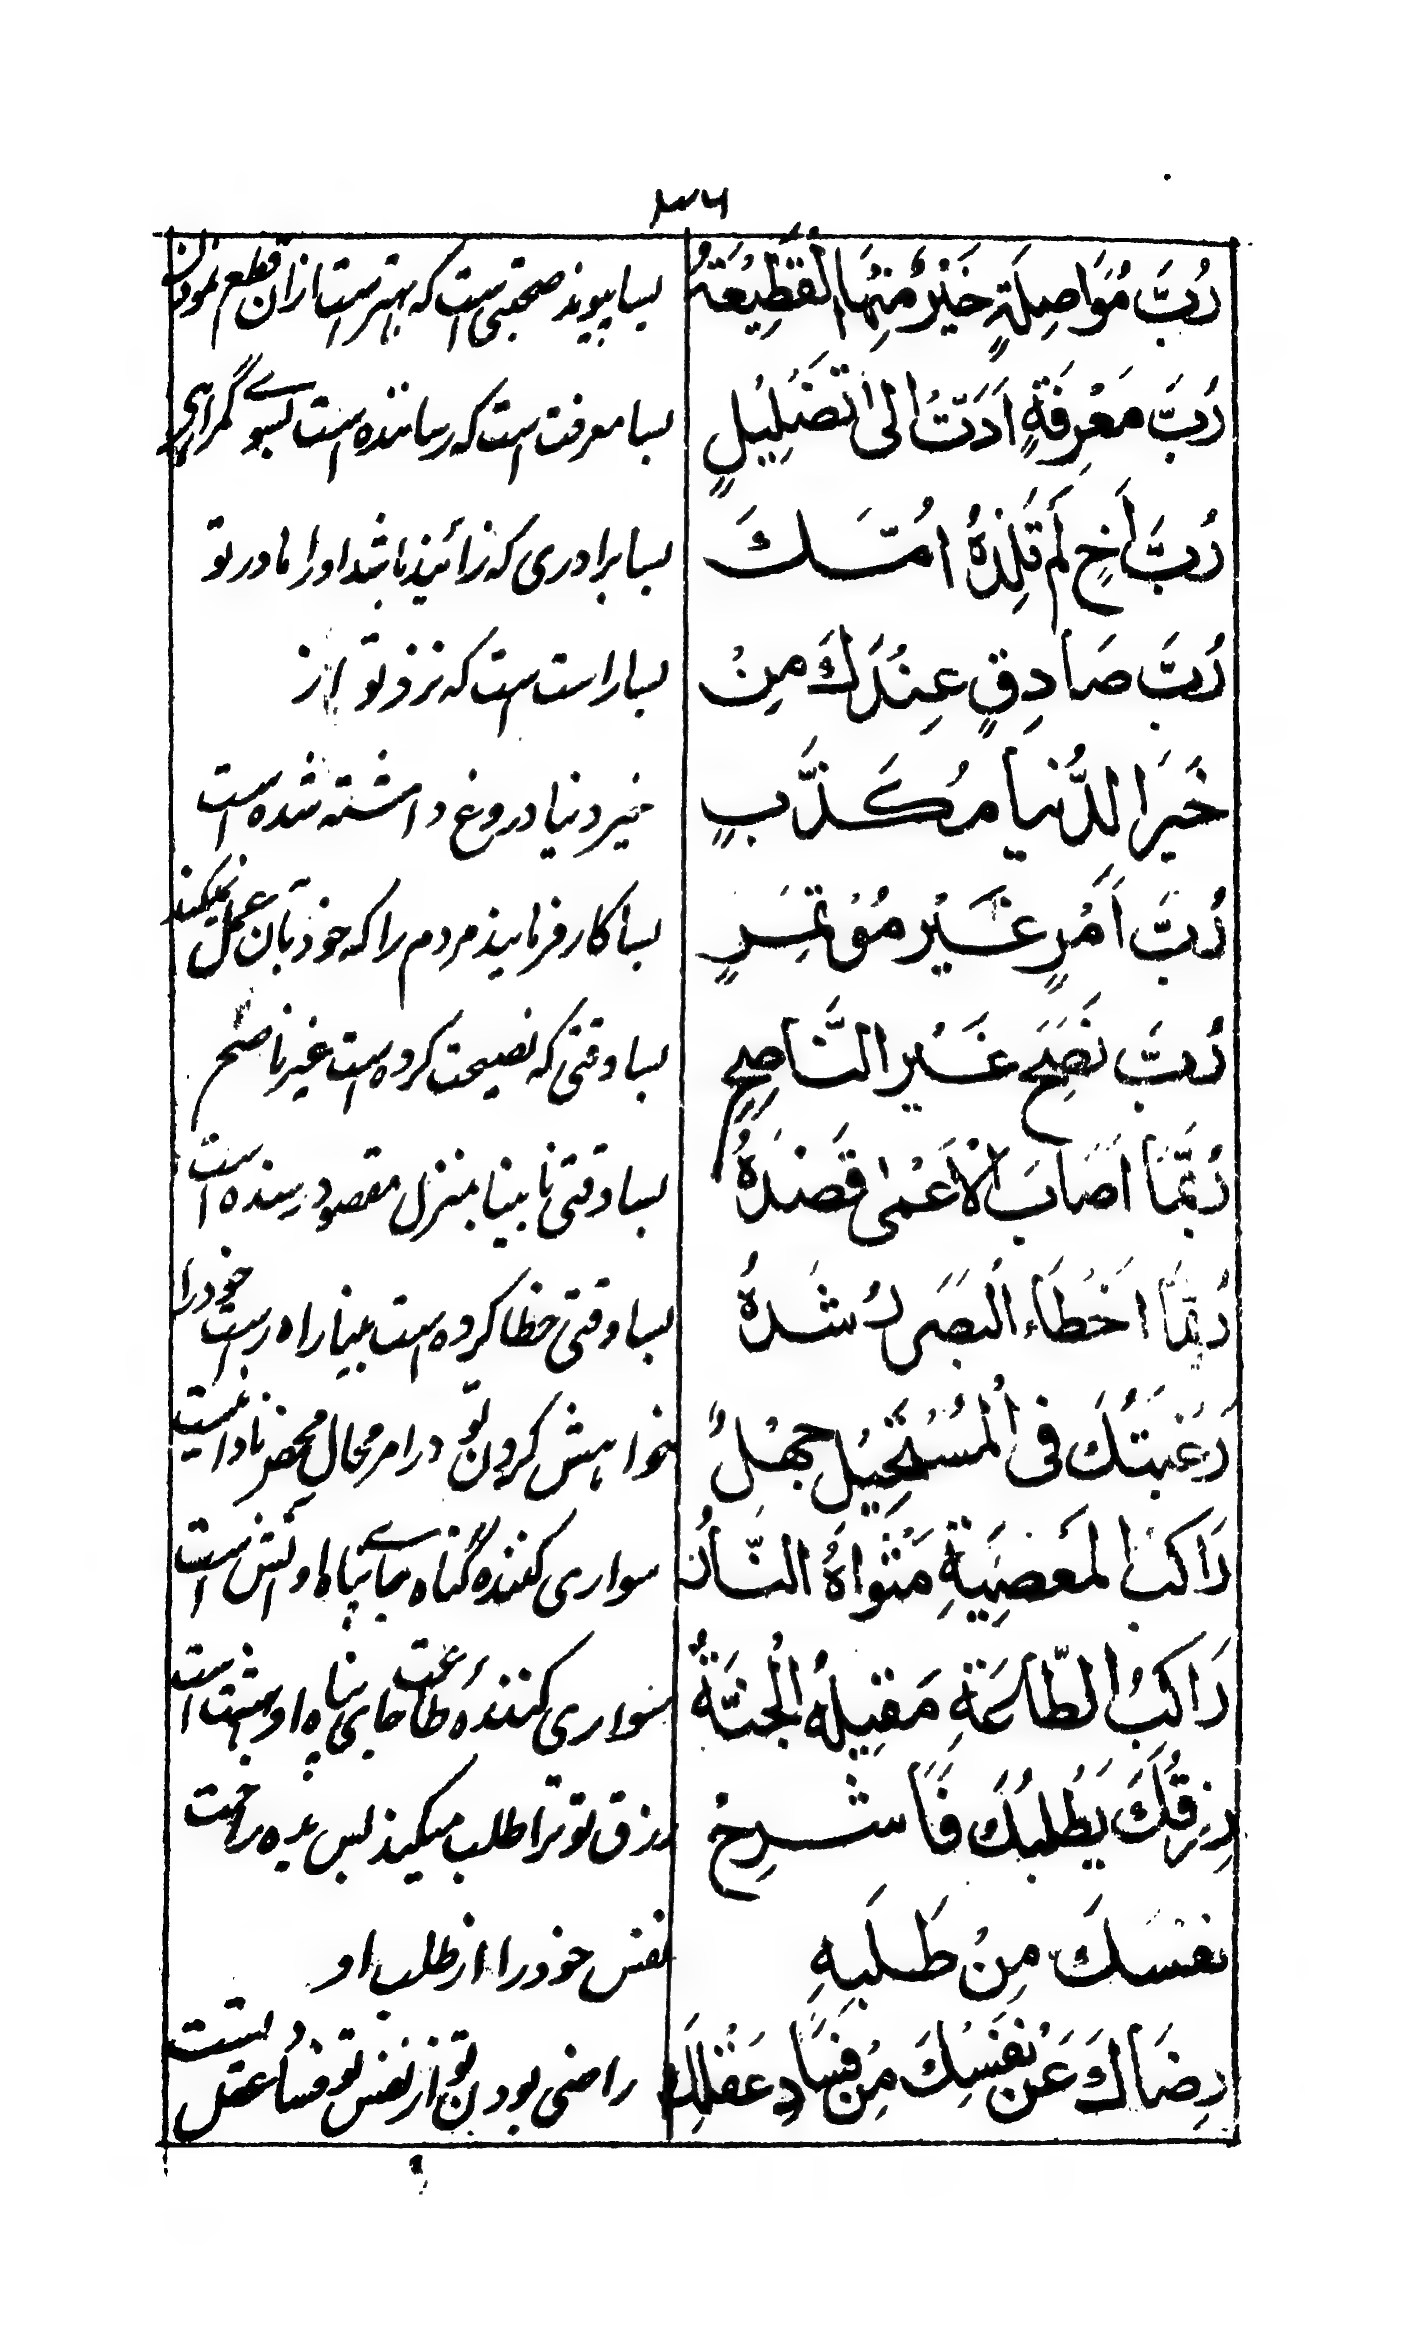 ۳۶
رُبَّ مُوَاصِلَةٍ خَيْرٌ مِنْهَا الْقَطِيْعَةُ بسا پیوند صحبتی است که بهتر است ازان قطع نمودن
رُبَّ مَعْرِفَةٍ اَدَّتْ اِلٰى تَضْلِيْلٍ بسا معرفت است که رساننده است بسوے گمراهی
رُبَّ اَخٍ لَمْ تَلِدْهُ اُمُّكَ بسا برادری که زائیده باشد اورا مادر تو
رُبَّ صَادِقٍ عِنْدَكَ مِنْ بسا راست است که نزد تو از
خَيَرِ الدُّنْيا مُكَذَّبٍ خیر دنیا دروغ داشته شده است
رُبَّ اَمْرٍ غَيْرِ مُؤْتَمِرٍ بسا کار فرمایند مردم را که خود بآن عمل نمیکند
رُبَّ نَصَحَ غَيْرِ النَّاصِحِ بسا وقتی که نصیحت کرده است غیر ناصح
رُبَّمَا اَصَابَ الْاَعْمٰى قَصْدَهُ بسا وقتی نابینا بمنزل مقصود رسنده است
رُبَّمَا اَخْطَاءَ الْبَصَر رُشَدَهُ بسا وقتی خطا کرده است بینا راه راست خود را
رَغْبَتُكَ فِى الْمُسْتَحِيْلِ جَهْلٌ خواهش کردن تو در امر محال محض نادانیست
رَاكِبُ الْمَعْصِيَةِ مَثْوَاهُ النَّارُ سواری کننده گناه جاے پناه او آتش است
رَاكِبُ الطَّاعَةِ مَقِيْلُهُ الْجَنَّةُ سواری کنندهٔ طاعت جای پناه او بهشت است
رِزْقُكَ يَطْلُبُكَ فَاَشْرِحْ رزق تو ترا طلب میکند پس بده راحت
نَفْسَكَ مِنْ طَلَبِهِ نفس خود را از طلب او
رِضَاكَ عَنْ نَفْسِكَ مِنْ فَسَادِ عَقْلِكَ راضی بودن تو از نفس تو فساد عقل تست